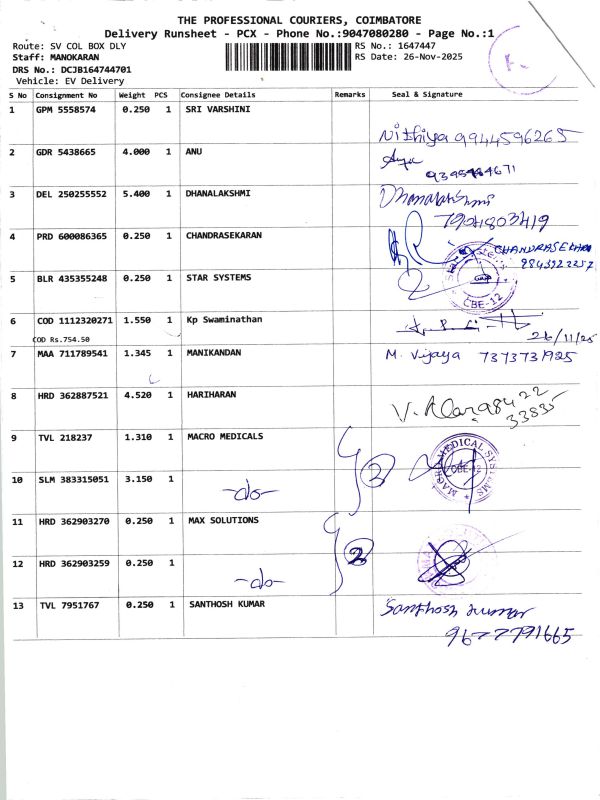 THE PROFESSIONAL COURIERS, COIMBATORE
Delivery Runsheet - PCX - Phone No.:9047080280 - Page No.:1
Route: SV COL BOX DLY
RS No.: 1647447
Staff: MANOKARAN
RS Date: 26-Nov-2025
DRS No.: DCJB164744701
Vehicle: EV Delivery
S No Consignment No Weight PCS Consignee Details Remarks Seal & Signature
1 GPM 5558574 0.250 1 SRI VARSHINI
Nithiya 9944596265
2 GDR 5438665 4.000 1 ANU
3 DEL 250255552 5.400 1 DHANALAKSHMI
Dhanalakshmi
7904803419
4 PRD 600086365 0.250 1 CHANDRASEKARAN
CHANDRASEKARAN
5 BLR 435355248 0.250 1 STAR SYSTEMS
CBE-12
6 COD 1112320271 1.550 1 Kp Swaminathan
COD Rs.754.50
26/11/25
7 MAA 711789541 1.345 1 MANIKANDAN
M. Vijaya 7373731925
8 HRD 362887521 4.520 1 HARIHARAN
9 TVL 218237 1.310 1 MACRO MEDICALS
2
MACRO MEDICAL SYSTEMS
CBE-12
10 SLM 383315051 3.150 1
-do-
11 HRD 362903270 0.250 1 MAX SOLUTIONS
2
12 HRD 362903259 0.250 1
-do-
13 TVL 7951767 0.250 1 SANTHOSH KUMAR
Santhosh kumar
9677791665